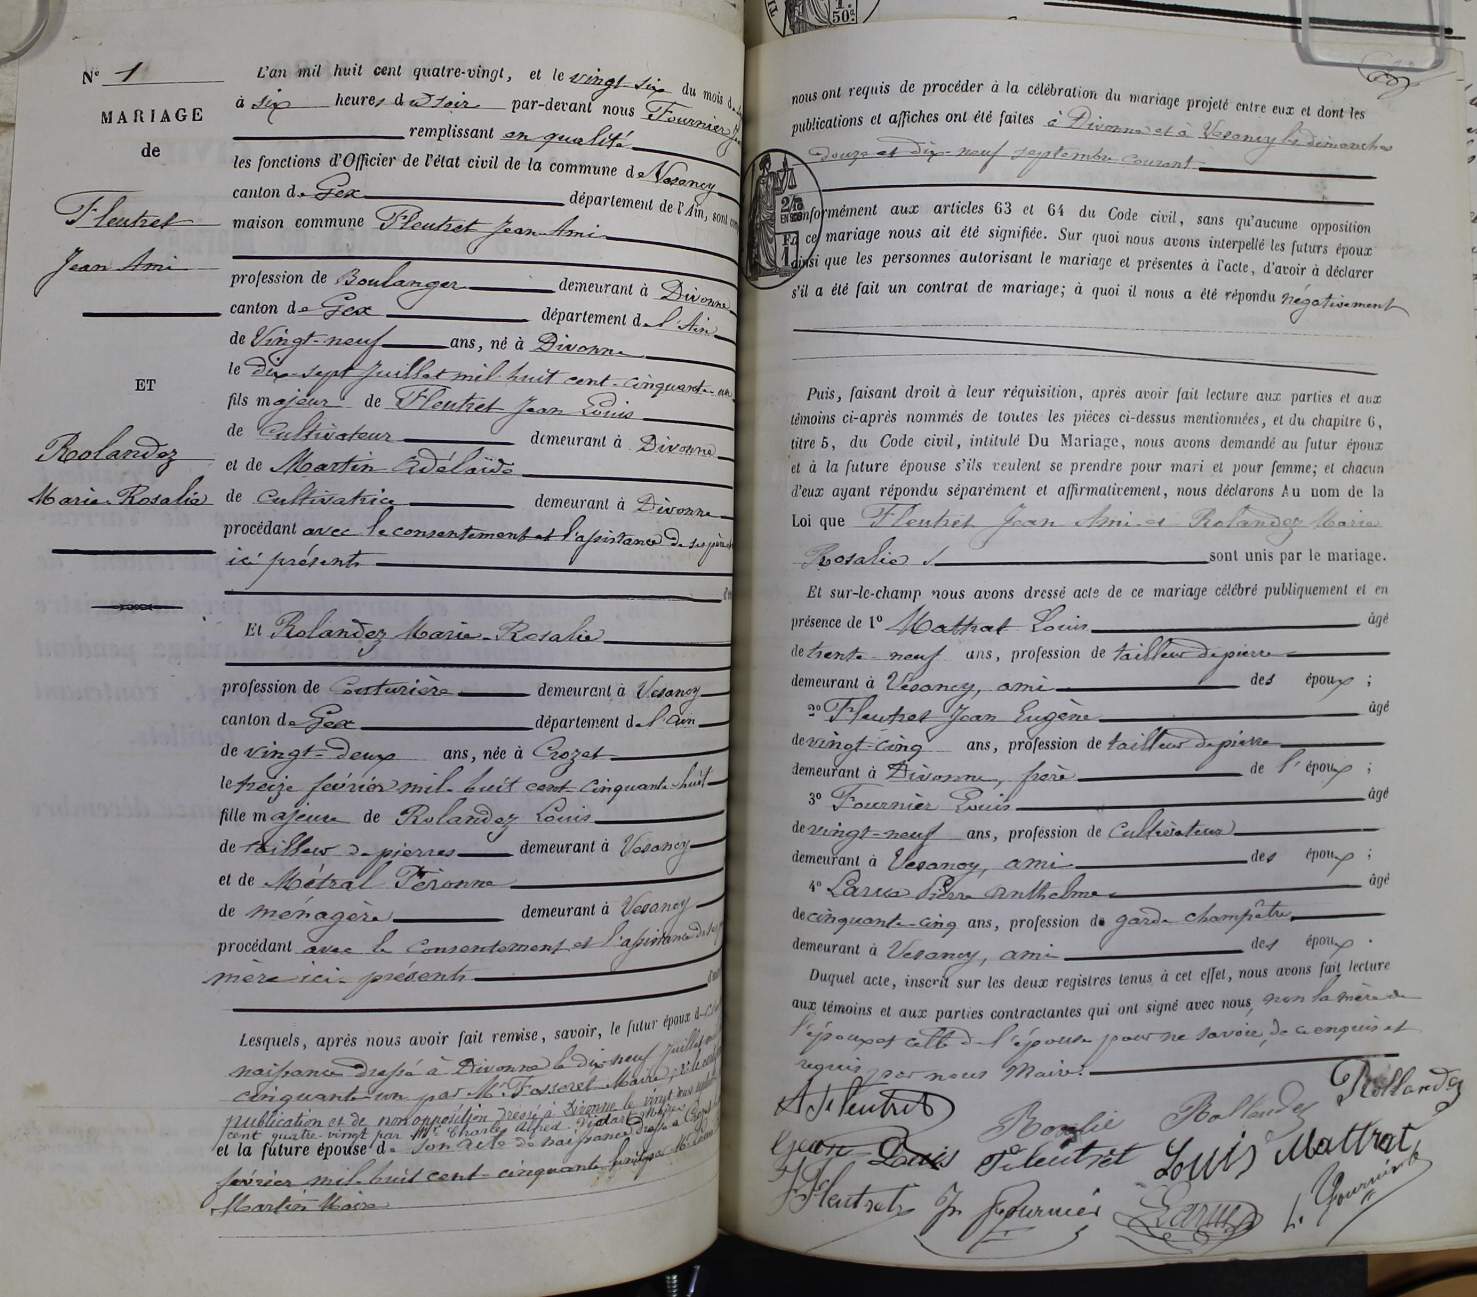 N° 1
MARIAGE
de
Fleutret
Jean Ami
ET
Rolandez
Marie-Rosalie
L'an mil huit cent quatre-vingt, et le vingt-six du mois de
à six heures du soir par-devant nous Fournier
remplissant en qualité
les fonctions d'Officier de l'état civil de la commune de Vesancy
canton de Gex département de l'Ain, sont
maison commune Fleutret Jean Ami
profession de Boulanger demeurant à Divonne
canton de Gex département de l'Ain
de Vingt-neuf ans, né à Divonne
le dix-sept Juillet mil huit cent-cinquante-un
fils majeur de Fleutret Jean Louis
de Cultivateur demeurant à Divonne
et de Martin Adélaïde
de Cultivatrice demeurant à Divonne
procédant avec le consentement et l'assistance de ses père et
ici présents
Et Rolandez Marie-Rosalie
profession de Couturière demeurant à Vesancy
canton de Gex département de l'Ain
de vingt-deux ans, née à Crozet
le treize février mil huit cent cinquante-huit
fille majeure de Rolandez Louis
de tailleur de pierres demeurant à Vesancy
et de Métral Péronne
de ménagère demeurant à Vesancy
procédant avec le Consentement et l'assistance de
mère ici présents
Lesquels, après nous avoir fait remise, savoir, le futur époux d
naissance dressé à Divonne le dix-neuf Juillet
cinquante-un par Mr. Fosseret Maire,
publication et de non opposition dressé à Divonne le vingt
cent quatre-vingt par Mr. Charles Alfred Maire
et la future épouse de son acte de naissance dressé à Crozet
février mil-huit cent-cinquante huit par Mr
Martin Maire
nous ont requis de procéder à la célébration du mariage projeté entre eux et dont les
publications et affiches ont été faites à Divonne et à Vesancy les dimanches
douze et dix-neuf septembre courant
conformément aux articles 63 et 64 du Code civil, sans qu'aucune opposition
à ce mariage nous ait été signifiée. Sur quoi nous avons interpellé les futurs époux
ainsi que les personnes autorisant le mariage et présentes à l'acte, d'avoir à déclarer
s'il a été fait un contrat de mariage; à quoi il nous a été répondu négativement
Puis, faisant droit à leur réquisition, après avoir fait lecture aux parties et aux
témoins ci-après nommés de toutes les pièces ci-dessus mentionnées, et du chapitre 6,
titre 5, du Code civil, intitulé Du Mariage, nous avons demandé au futur époux
et à la future épouse s'ils veulent se prendre pour mari et pour femme; et chacun
d'eux ayant répondu séparément et affirmativement, nous déclarons Au nom de la
Loi que Fleutret Jean Ami et Rolandez Marie
Rosalie sont unis par le mariage.
Et sur-le-champ nous avons dressé acte de ce mariage célébré publiquement et en
présence de 1° Mattrat Louis âgé
de trente-neuf ans, profession de tailleur de pierre
demeurant à Vesancy, ami des époux ;
2° Fleutret Jean Eugène âgé
de vingt-cinq ans, profession de tailleur de pierre
demeurant à Divonne, frère de l'époux ;
3° Fournier Louis âgé
de vingt-neuf ans, profession de Cultivateur
demeurant à Vesancy, ami des époux ;
4° Larue Pierre Anthelme âgé
de cinquante-cinq ans, profession de garde champêtre
demeurant à Vesancy, ami des époux.
Duquel acte, inscrit sur les deux registres tenus à cet effet, nous avons fait lecture
aux témoins et aux parties contractantes qui ont signé avec nous, non la mère de
l'époux et celle de l'épouse pour ne savoir, de ce enquis et
requis par nous Maire.
A Fleutret Rosalie Rollandez Rollandez
Jean Louis Fleutret Louis Mattrat
J Fleutret Jn Fournier Larue L. Fournier